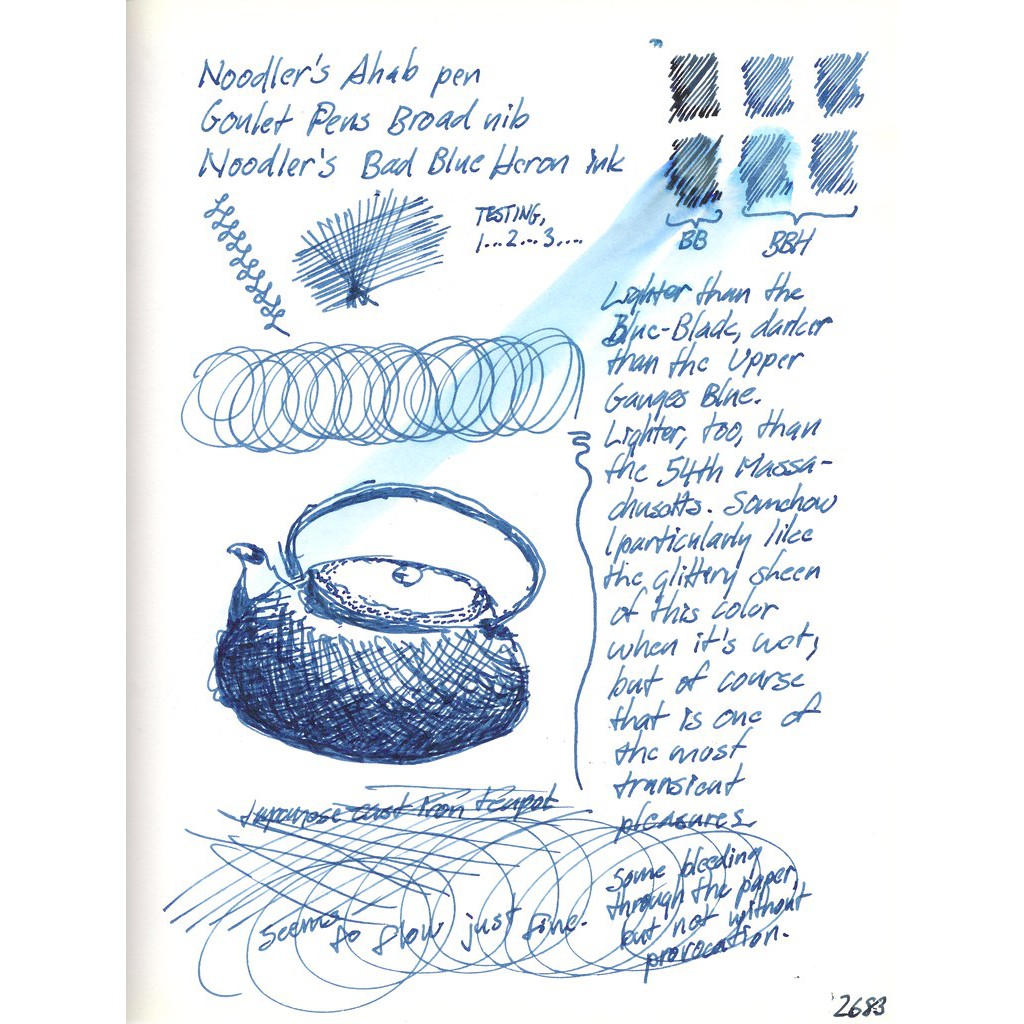 Noodler's Ahab pen
Goulet Pens Broad nib
Noodler's Bad Blue Heron ink
TESTING,
1...2...3....
BB
BBH
Lighter than the
Blue-Black, darker
than the Upper
Ganges Blue.
Lighter, too, than
the 54th Massa-
chusetts. Somehow
I particularly like
the glittery sheen
of this color
when it's wet,
but of course
that is one of
the most
transient
pleasures.
Japanese cast iron teapot
Seems to flow just fine.
Some bleeding
through the paper,
but not without
provocation.
'2683